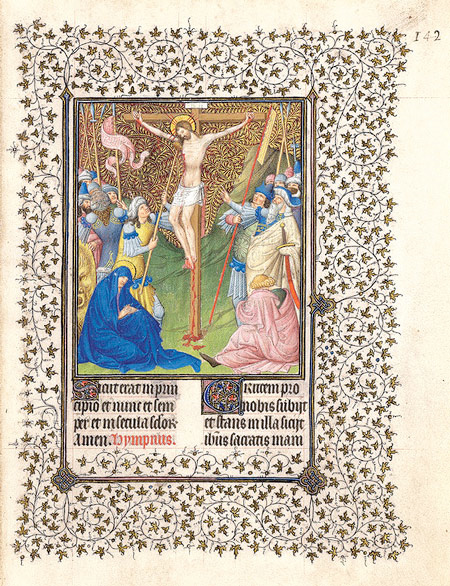 142
Sicut erat in prin
cipio et nunc et sem
per et in secula sclor.
Amen. Ympnus.
Crucem pro
nobis subijt
et stans in illa sicijt
ihūs sacratis mani